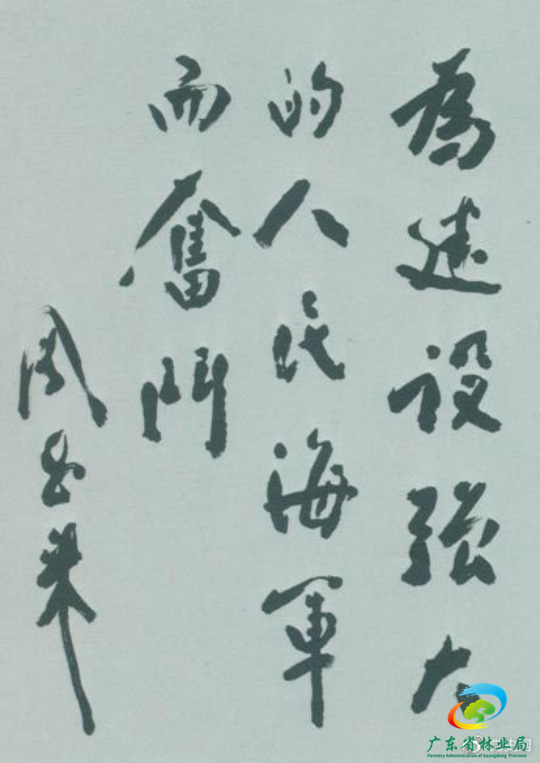 為建设强大
的人民海軍
而奮鬥
周恩来
广东省林业局
Forestry Administration of Guangdong Province